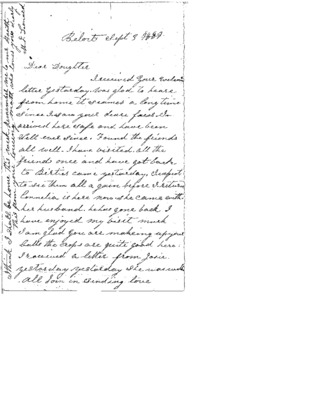 Beloit Sept 5 1889
Dear Daughter
I received your welcome
letter yesterday. was glad to heare
from home it seames a long time
since I saw your dear faces. I
arrived here safe and have been
well ever since. Found the friends
all well. I have visited all the
friends once and have got back
to Berties came yesterday. Expect
to see them all a gain before I return
Cornelia is here now she came with
her husband. he has gone back I
have enjoyed my visit much
I am glad you are making up your
the crops are quite good here.
I received a letter from Josie
yesterday yesterday she was well
All Join in sending love
I think I shall be home this week. remember me to